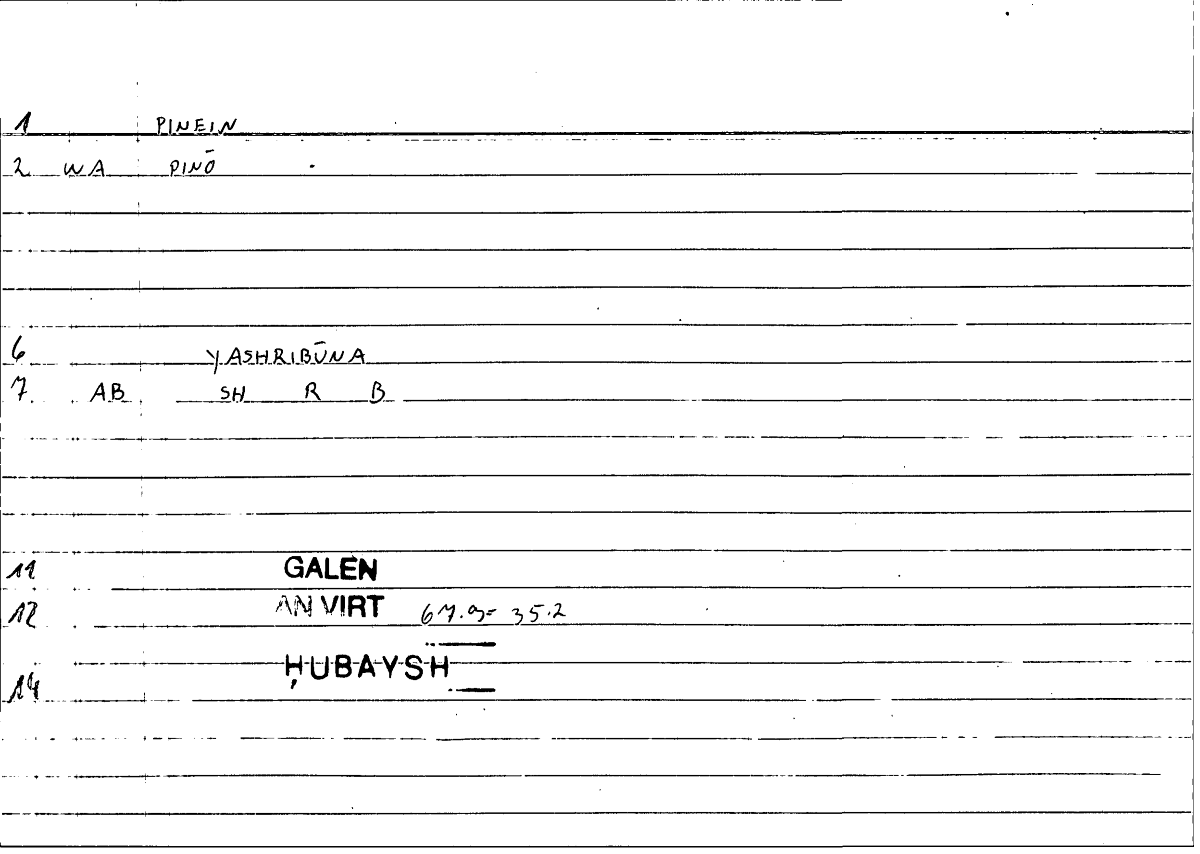 1 PINEIN
2. WA PINŌ
6 YASHRIBŪNA
7. AB SH R B
11 GALEN
12 AN VIRT 67.9= 35.2
ḤUBAYSH
14